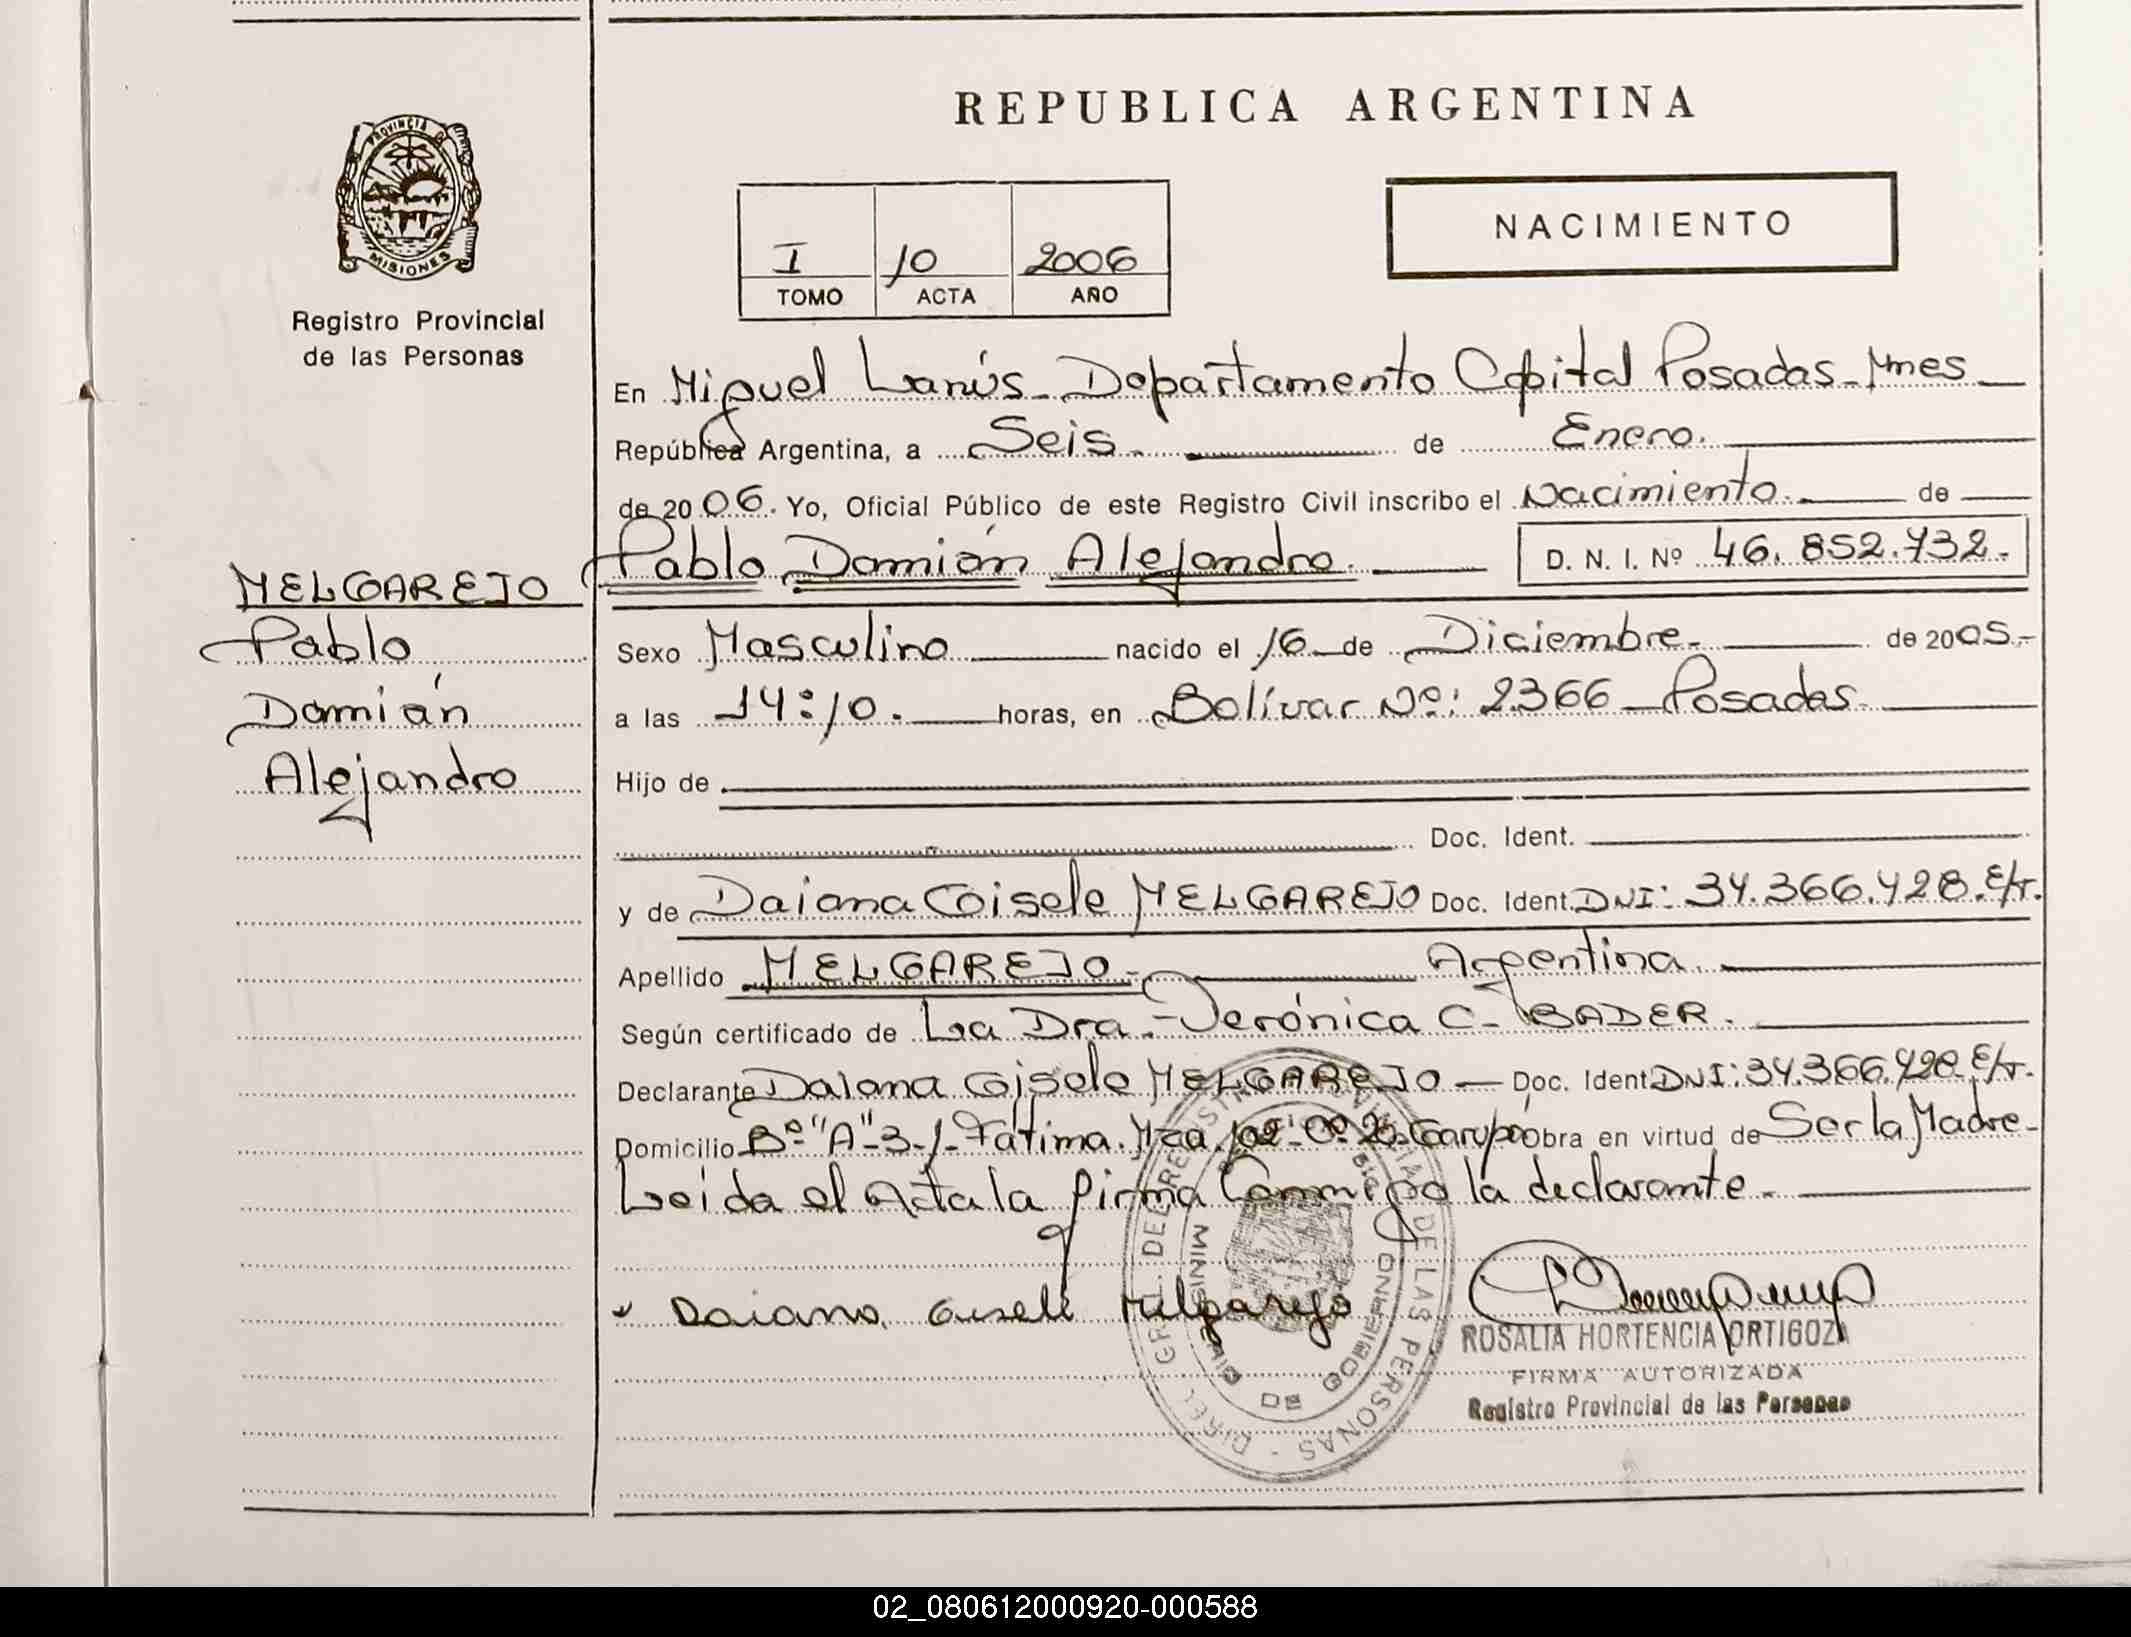 REPUBLICA ARGENTINA
PROVINCIA DE MISIONES
Registro Provincial
de las Personas
NACIMIENTO
I 10 2006
TOMO ACTA AÑO
En Miguel Lanús - Departamento Capital Posadas - Mnes
República Argentina, a Seis de Enero.
de 2006. Yo, Oficial Público de este Registro Civil inscribo el Nacimiento. de
Pablo Damián Alejandro. D. N. I. Nº 46.852.732.-
MELGAREJO
Pablo
Damián
Alejandro
Sexo Masculino nacido el 16 de Diciembre. de 2005.-
a las 14:10. horas, en Bolívar Nº: 2366 - Posadas.
Hijo de
Doc. Ident.
y de Daiana Gisele MELGAREJO Doc. Ident. DNI: 34.366.428. E/t.
Apellido MELGAREJO.- Argentina.
Según certificado de La Dra.- Verónica C. BADER.
Declarante Daiana Gisele MELGAREJO - Doc. Ident. DNI: 34.366.428. E/t.
Domicilio Bº "A"-3-1- Fátima. Mza. Garupá obra en virtud de Ser la Madre.-
Leida el Acta la firma Conmigo la declarante.
Daiana Gisele Melgarejo
ROSALIA HORTENCIA ORTIGOZA
FIRMA AUTORIZADA
Registro Provincial de las Personas
DIREC. GRAL. DEL REGISTRO PROVINCIAL DE LAS PERSONAS -
MINISTERIO DE GOBIERNO
02_080612000920-000588